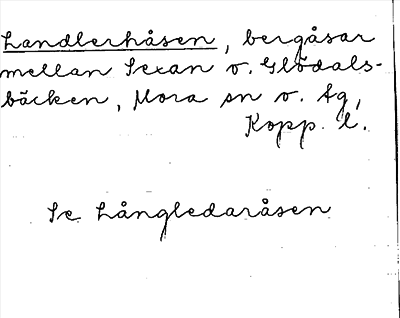 Landlerhåsen, bergåsar
mellan Sexan o. Glödals-
bäcken, Mora sn o. tg,
Kopp. l.
Se Långledaråsen